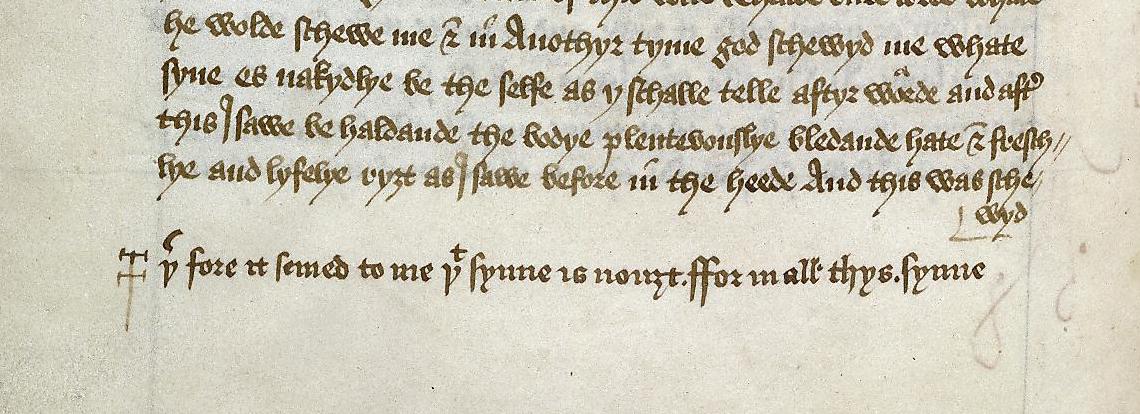 he wolde schewe me & in Anothyr tyme god schewyd me whate
syne es nakydlye be the selfe as y schalle telle aftyr warde and aftˀ
this I sawe be haldande the bodye plentevouslye bledande hate & fresch//
lye and lyfelye ryȝt as I sawe before in the heede And this was sche/
wyd
þˀ fore it semed to me þͭ synne is nouȝt. ffor in all thys. synne